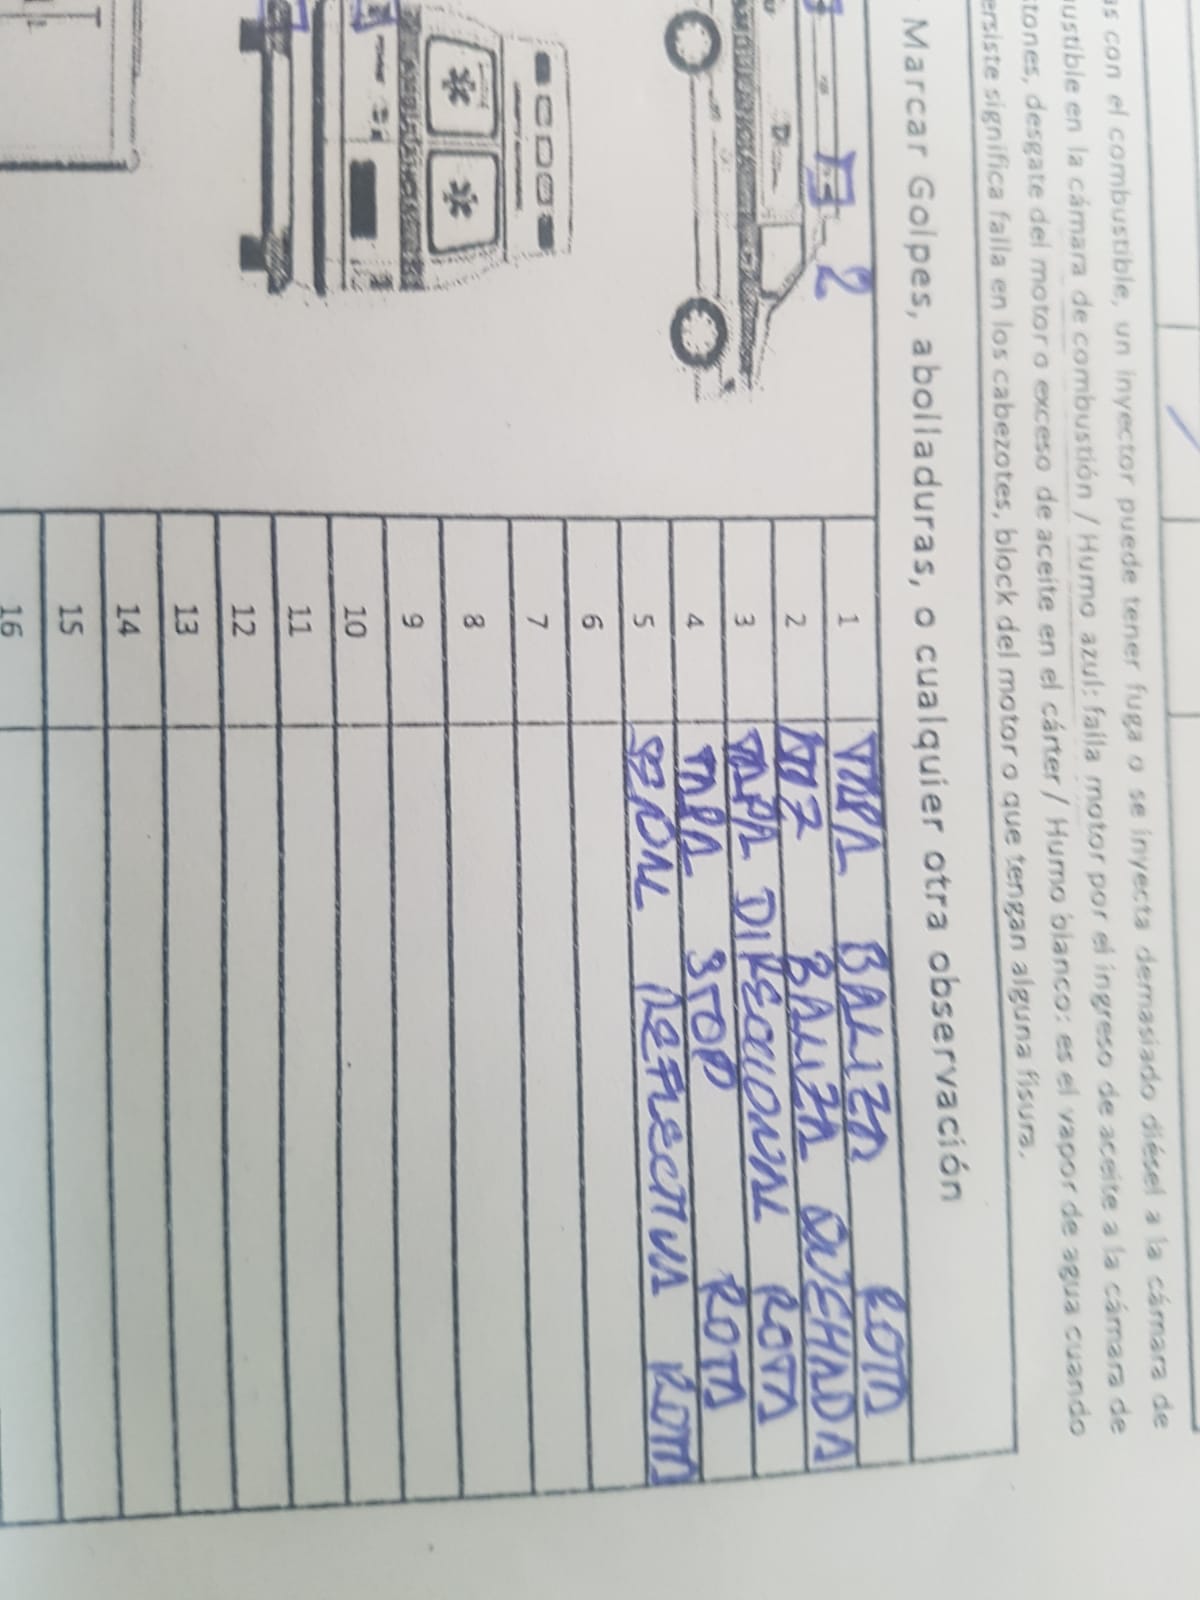 as con el combustible, un inyector puede tener fuga o se inyecta demasiado diésel a la cámara de
ustible en la cámara de combustión / Humo azul: falla motor por el ingreso de aceite a la cámara de
tones, desgate del motor o exceso de aceite en el cárter / Humo blanco: es el vapor de agua cuando
ersiste significa falla en los cabezotes, block del motor o que tengan alguna fisura.
Marcar Golpes, abolladuras, o cualquier otra observación
2
1 TAPA BALIZA ROTA
2 LUZ BALIZA QUEMADA
3 TAPA DIRECCIONAL ROTA
4 TAPA STOP ROTA
5 SEÑAL REFLECTIVA ROTA
6
7
8
9
10
11
12
13
14
15
16